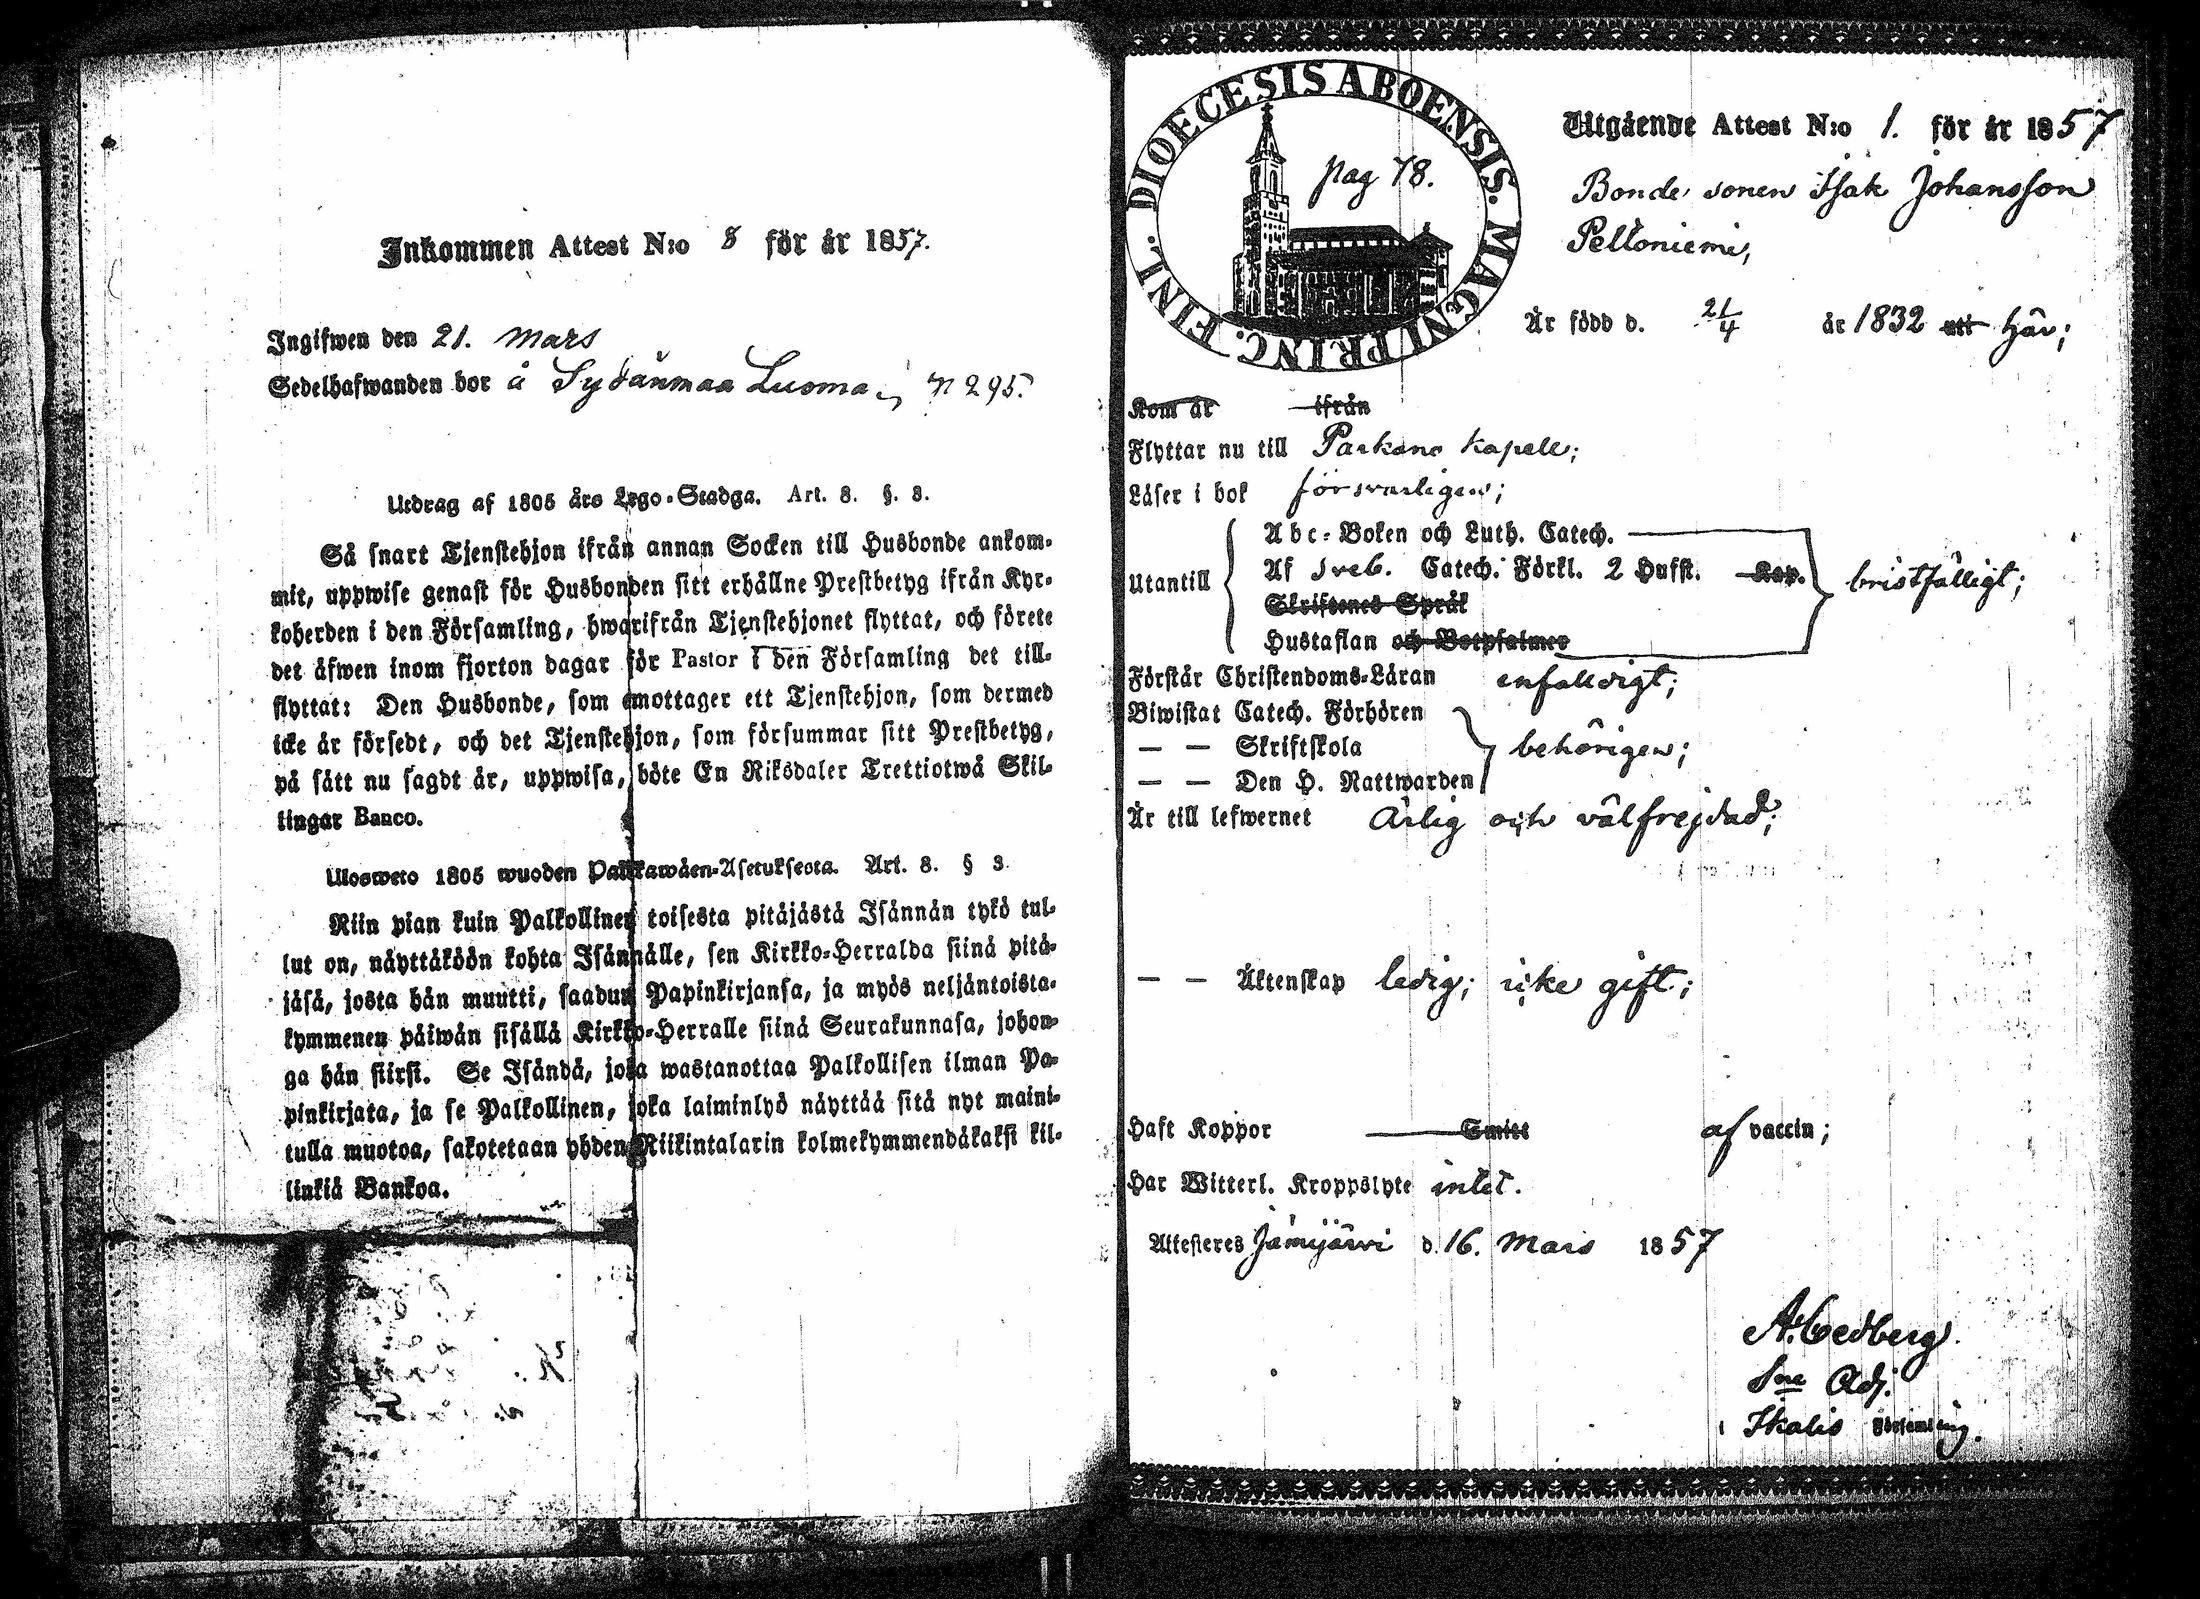 Inkommen Attest N:o 8 för år 1857.
Ingifwen den 21. Mars
Sedelhafwanden bor å Sydänmaa Luoma, n 295.
Utdrag af 1805 års Lego-Stadga. Art. 8. §. 3.
Så snart Tjenstehjon ifrån annan Socken till Husbonde ankom-
mit, uppwise genast för Husbonden sitt erhållne Prestbetyg ifrån Kyr-
koherden i den Församling, hwarifrån Tjenstehjonet flyttat, och förete
det äfwen inom fjorton dagar för Pastor i den Församling det till-
flyttat: Den Husbonde, som emottager ett Tjenstehjon, som dermed
icke är försedt, och det Tjenstehjon, som försummar sitt Prestbetyg,
på sätt nu sagdt är, uppwisa, böte En Riksdaler Trettiotwå Skil-
lingar Banco.
Ulosweto 1805 wuoden Palkkawäen-Asetuksesta. Art. 8. § 3.
Niin pian kuin Palkollinen toisesta pitäjästä Isännän tykö tul-
lut on, näyttäköön kohta Isännälle, sen Kirkko-Herralda siinä pitä-
jäsä, josta hän muutti, saadun Papinkirjansa, ja myös neljäntoista-
kymmenen päiwän sisällä Kirkko-Herralle siinä Seurakunnasa, johon-
ga hän siirsi. Se Isändä, joka wastanottaa Palkollisen ilman Pa-
pinkirjata, ja se Palkollinen, joka laiminlyö näyttää sitä nyt maini-
tulla muotoa, sakotetaan yhden Riikintalarin kolmekymmendäkaksi kil-
linkiä Bankoa.
DIOECESIS ABOENSIS. MAGNI PRINC. FINL.
pag 78.
Utgående Attest N:o 1. för år 1857
Bonde sonen Isak Johansson
Peltoniemi,
Är född d. 21/4 år 1832 utt här;
Kom år ifrån
Flyttar nu till Parkano Kapell;
Läser i bok försvarligen;
Utantill
Abc-Boken och Luth. Catech.
Af Sveb. Catech. Förkl. 2 Hufst. Kap.
Skriftenes Språk
Hustaflan och Botpsalmer
bristfälligt;
Förstår Christendoms-Läran enfaldigt;
Biwistat Catech. Förhören
— — Skriftskola
— — Den H. Nattwarden
behörigen;
Är till lefwernet Ärlig och välfrejdad;
— — Äktenskap ledig; icke gift;
Haft Koppor Smitt af vaccin;
Har Witterl. Kroppslyte intet.
Attesteres Jämijärvi d. 16. Mars 1857
A. Cedberg.
Sne Adj.
i Ikalis Församling.